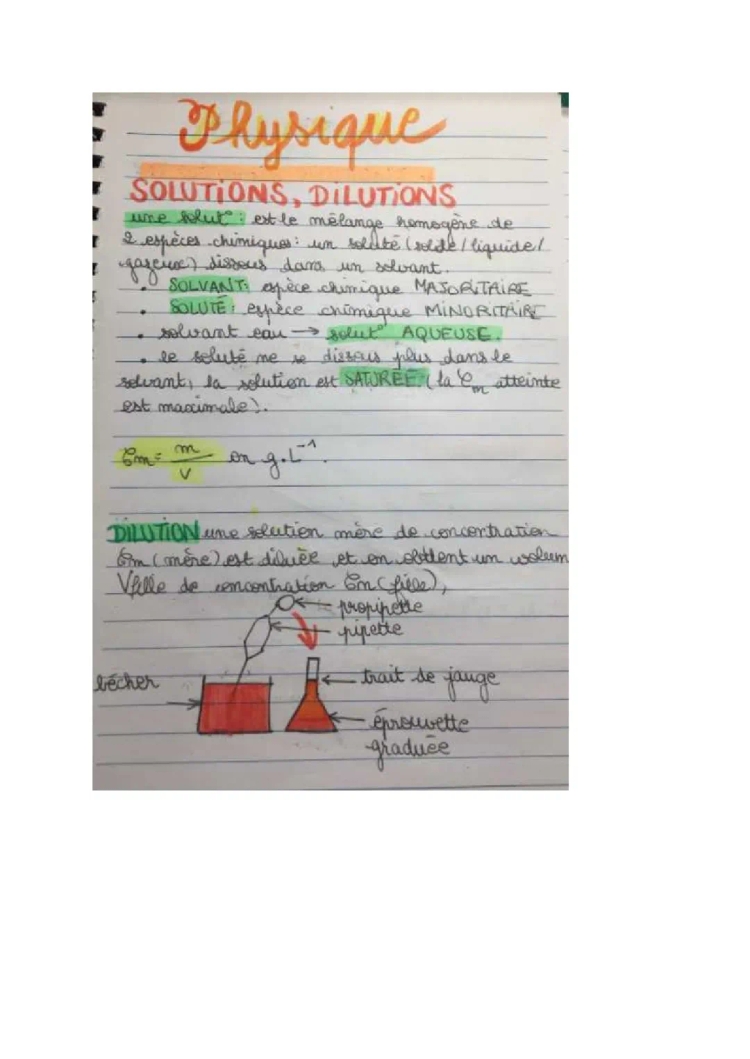 Physique
SOLUTIONS, DILUTIONS
une solut°: est le mélange homogène de
2 espèces chimiques: un soluté (solide/liquide/
gazeux) dissous dans un solvant.
• SOLVANT: espèce chimique MAJORITAIRE
• SOLUTÉ: espèce chimique MINORITAIRE
• solvant eau → solut° AQUEUSE.
• le soluté ne se dissous plus dans le
solvant, la solution est SATURÉE (la Cm atteinte
est maximale).
Cm = m/V en g.L⁻¹.
DILUTION une solution mère de concentration
Cm (mère) est diluée et on obtient un volum
Vfille de concentration Cm (fille),
propipette
pipette
bécher
trait de jauge
éprouvette
graduée